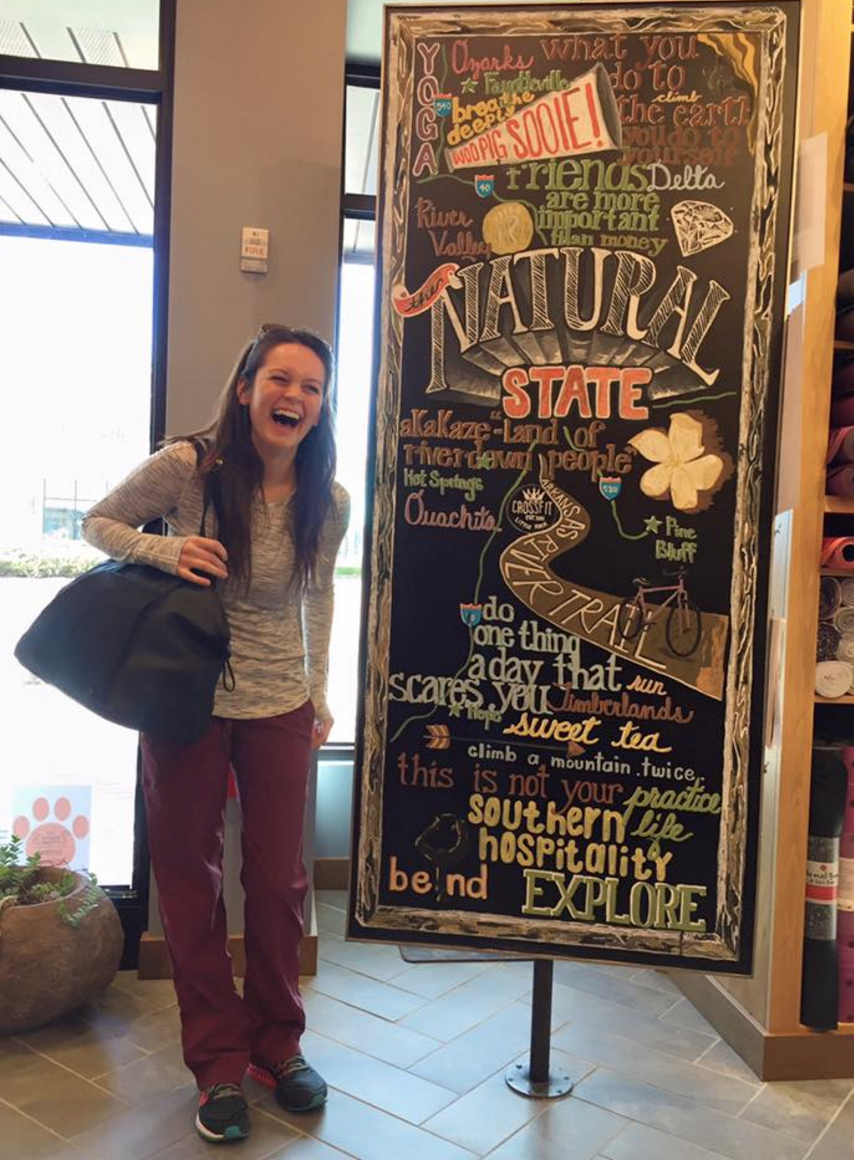 YOGA
Ozarks
what you
do to
climb
the earth
you do to
yourself
Fayetteville
540
breathe
deeply
WOO PIG SOOIE!
40
friends
are more
important
than money
Delta
River
Valley
the
NATURAL
STATE
aKaKaze-"Land of
riverdown people"
Hot Springs
Ouachita
CROSSFIT
LITTLE ROCK
530
Pine
Bluff
ARKANSAS
RIVER TRAIL
do
one thing
a day that
scares you
run
Timberlands
Hope
sweet tea
climb a mountain.twice.
this is not your practice
life
southern
hospitality
be nd
EXPLORE
FIRE